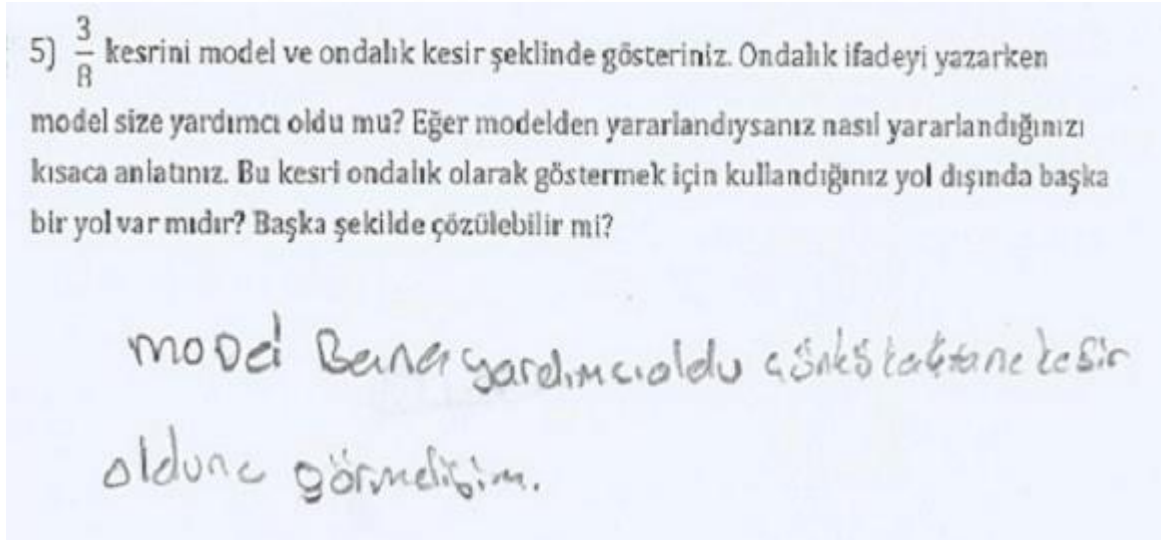 5) 3/8 kesrini model ve ondalık kesir şeklinde gösteriniz. Ondalık ifadeyi yazarken
model size yardımcı oldu mu? Eğer modelden yararlandıysanız nasıl yararlandığınızı
kısaca anlatınız. Bu kesri ondalık olarak göstermek için kullandığınız yol dışında başka
bir yol var mıdır? Başka şekilde çözülebilir mi?
moDel Bana yardımcı oldu çünkü kaç tane kesir
oldunu görmeliyim.